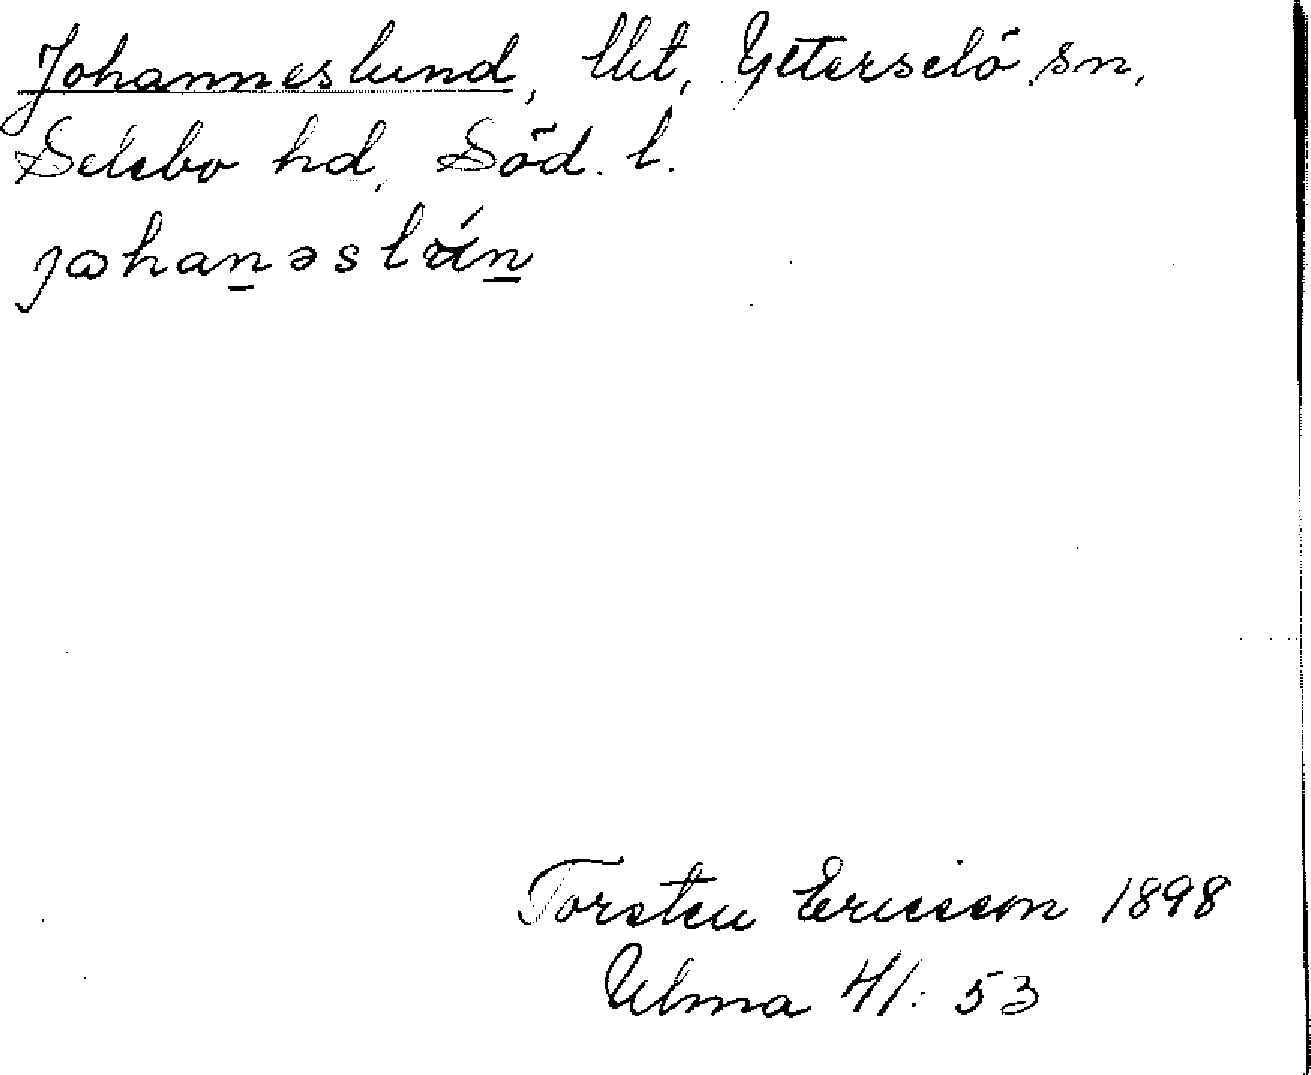 Johanneslund, lht, Ytterselö sn,
Selebo hd, Söd. l.
Torsten Ericsson 1898
Ulma 41: 53